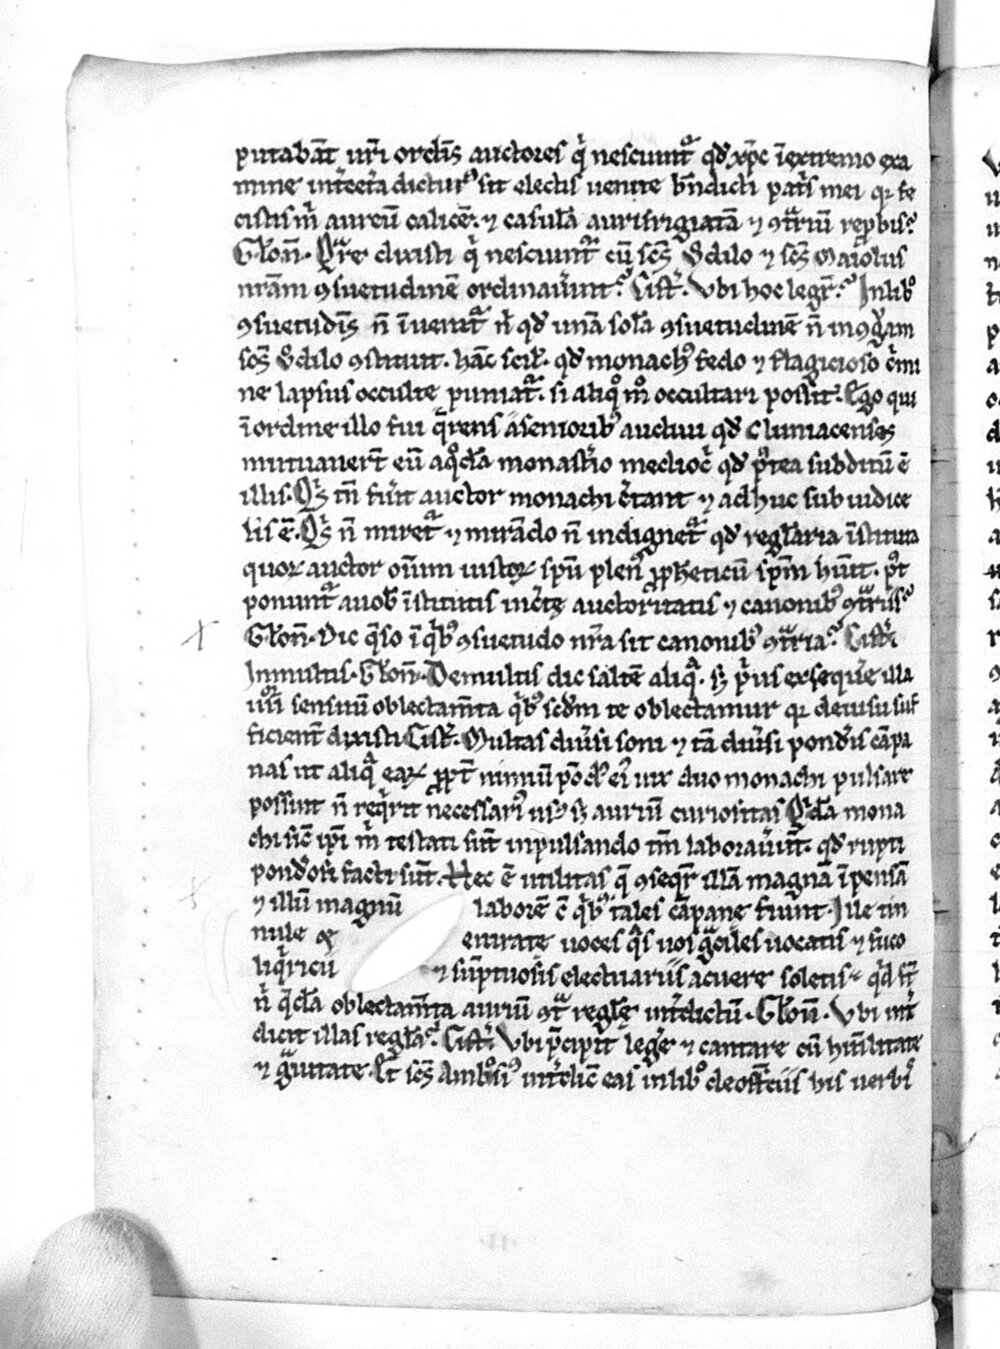 putabāt ur̄i ordīs auctores q̇ nesciunt᷑ qđ xp̄c ī extremo exa
mine int̉ cet̉a dictur᷒ sit electis uenite bn̄dicti pat̉s mei qꝛ fe
cistis m̉ aureū calicē ⁊ casulā aurifrigiatā ⁊ ꝯt̾riū rep̄bis.
Cłoñ. Q̾re dixisti q̇ nesciunt᷑ cū sc̄s Odilo ⁊ sc̄s Maiolus
nr̄am ꝯsuetudinē ordinauer̄unt. Cist̉. Vbi hoc legit᷑. In lib̊
ꝯsuetudīs n̄ īuenit᷑ n̉ qđ unā solā ꝯsuetudinē n̄ in ꝯg̊am
sc̄s Odilo ꝯstituit. hāc scił. qđ monach᷒ fedo ⁊ flagicioso c̉mi
ne lapsus occulte puniat᷑. si aliq̊ m̊ occultari possit. Ego qui
ī ordine illo fui q̄rens a senorib᷒ audiui qđ Cluniacenses
mutuauer̄t eū a q̊dā monast̉io mediocr̉ qđ p᷒tea subditū ē
illis. Q̇s tn̄ fu̾it auctor monachi c̉tant ⁊ adhuc sub iudice
lis ē. Q̇s n̄ miret᷑ ⁊ mirando n̄ indignet᷑ qđ regłaria īstituta
quoꝝ auctor oīum iustoꝝ sp̄u plen᷒ ꝓpheticū sp̄m hūit. p᷒t
ponunt᷑ a uob̄ īstitutis inc̉tę auctoritatis ⁊ canonib᷒ ꝯt̾riis.
Cłoñ. Dic q̄so ī q̇b᷒ ꝯsuetudo nr̄a sit canonib᷒ ꝯt̾ria. Cist̉.
In multis. Cłoñ. De multis dic saltē aliq̾. sꝫ p̉us exseque̾ illa
ur̄i sensuū oblectam̄ta q̇b᷒ sc̄đm te oblectamur qꝛ de uisu suf
ficient̉ dixisti Cist̉. Multas diu̾si soni ⁊ tā diu̾si pond̾is cāpa
nas ut aliq̾ eaꝝ ꝓpt̉ nimiū pōd᷒ ei᷒ uix duo monachi pulsare
possint n̄ req̇rit necessari᷒ us᷒ sꝫ auriū curiositas Q̇dā mona
chi sic̄ ip̄i m̉ testati sūt in pulsando tm̄ laborauer̄t. qđ rupti
pond̾osi facti sūt. Hec ē utilitas q̄ ꝯseq̇t᷑ illā magnā īpensā
⁊ illū magnū laborē ī q̇b᷒ tales cāpanę fiunt. Ille tin
nule ⁊ euirate uoces q̾s uos g̾ciles uocatis ⁊ suco
liq̇ricii ⁊ sūptuosis electuariis acuere soletis. q̇d sūt
n̉ q̇dā oblectam̄ta auriū ꝯt̾ regłę int̉dictū. Cłoñ. Vbi int̉
dicit illas regła. Cist̉. Vbi p̄cipit lege̾ ⁊ cantare cū hūilitate
⁊ g̾uitate. Et sc̄s Ambrosi᷒ int̉dic̄ eas in lib̊ de officiis his uerbis